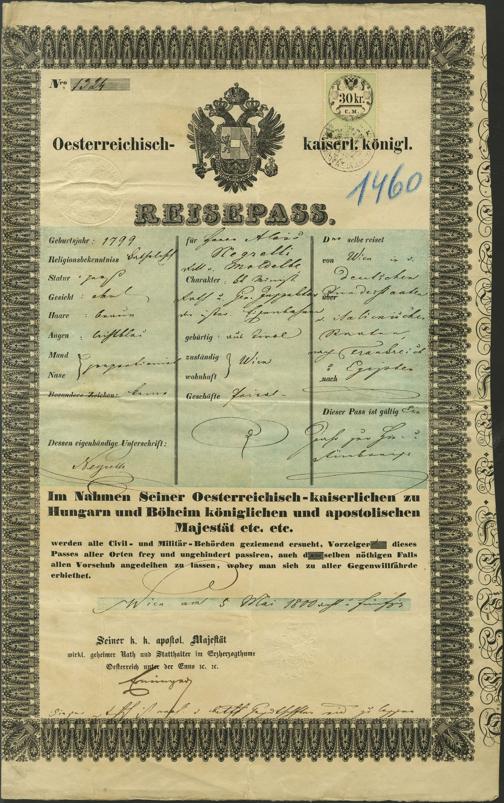 Nro 1324
30 kr.
C.M.
Oesterreichisch- kaiserl. königl.
1460
REISEPASS.
Geburtsjahr: 1799
Religionsbekenntniss katholisch
Statur: groß
Gesicht: oval
Haare: braun
Augen: lichtblau
Mund
Nase
proportionirt
Besondere Zeichen: keine
Dessen eigenhändige Unterschrift:
Negrelli
für Herrn Alois
Negrelli
Ritt. v. Moldelbe
Charakter:
der österr. Eisenbahnen
gebürtig: aus Tirol
zuständig
wohnhaft
Wien
Geschäfte Privat-
D selbe reiset
von Wien
Deutschen
über Bundesstaaten
Italienischen
Staaten
nach Frankreich
nach Egypten
Dieser Pass ist gültig
Im Nahmen Seiner Oesterreichisch-kaiserlichen zu
Hungarn und Böheim königlichen und apostolischen
Majestät etc. etc.
werden alle Civil- und Militär-Behörden geziemend ersucht, Vorzeiger dieses
Passes aller Orten frey und ungehindert passiren, auch d selben nöthigen Falls
allen Vorschub angedeihen zu lassen, wobey man sich zu aller Gegenwillfährde
erbiethet.
Wien am 5 Mai 1800
Seiner k. k. apostol. Majestät
wirkl. geheimer Rath und Statthalter im Erzherzogthume
Oesterreich unter der Enns ꝛc. ꝛc.